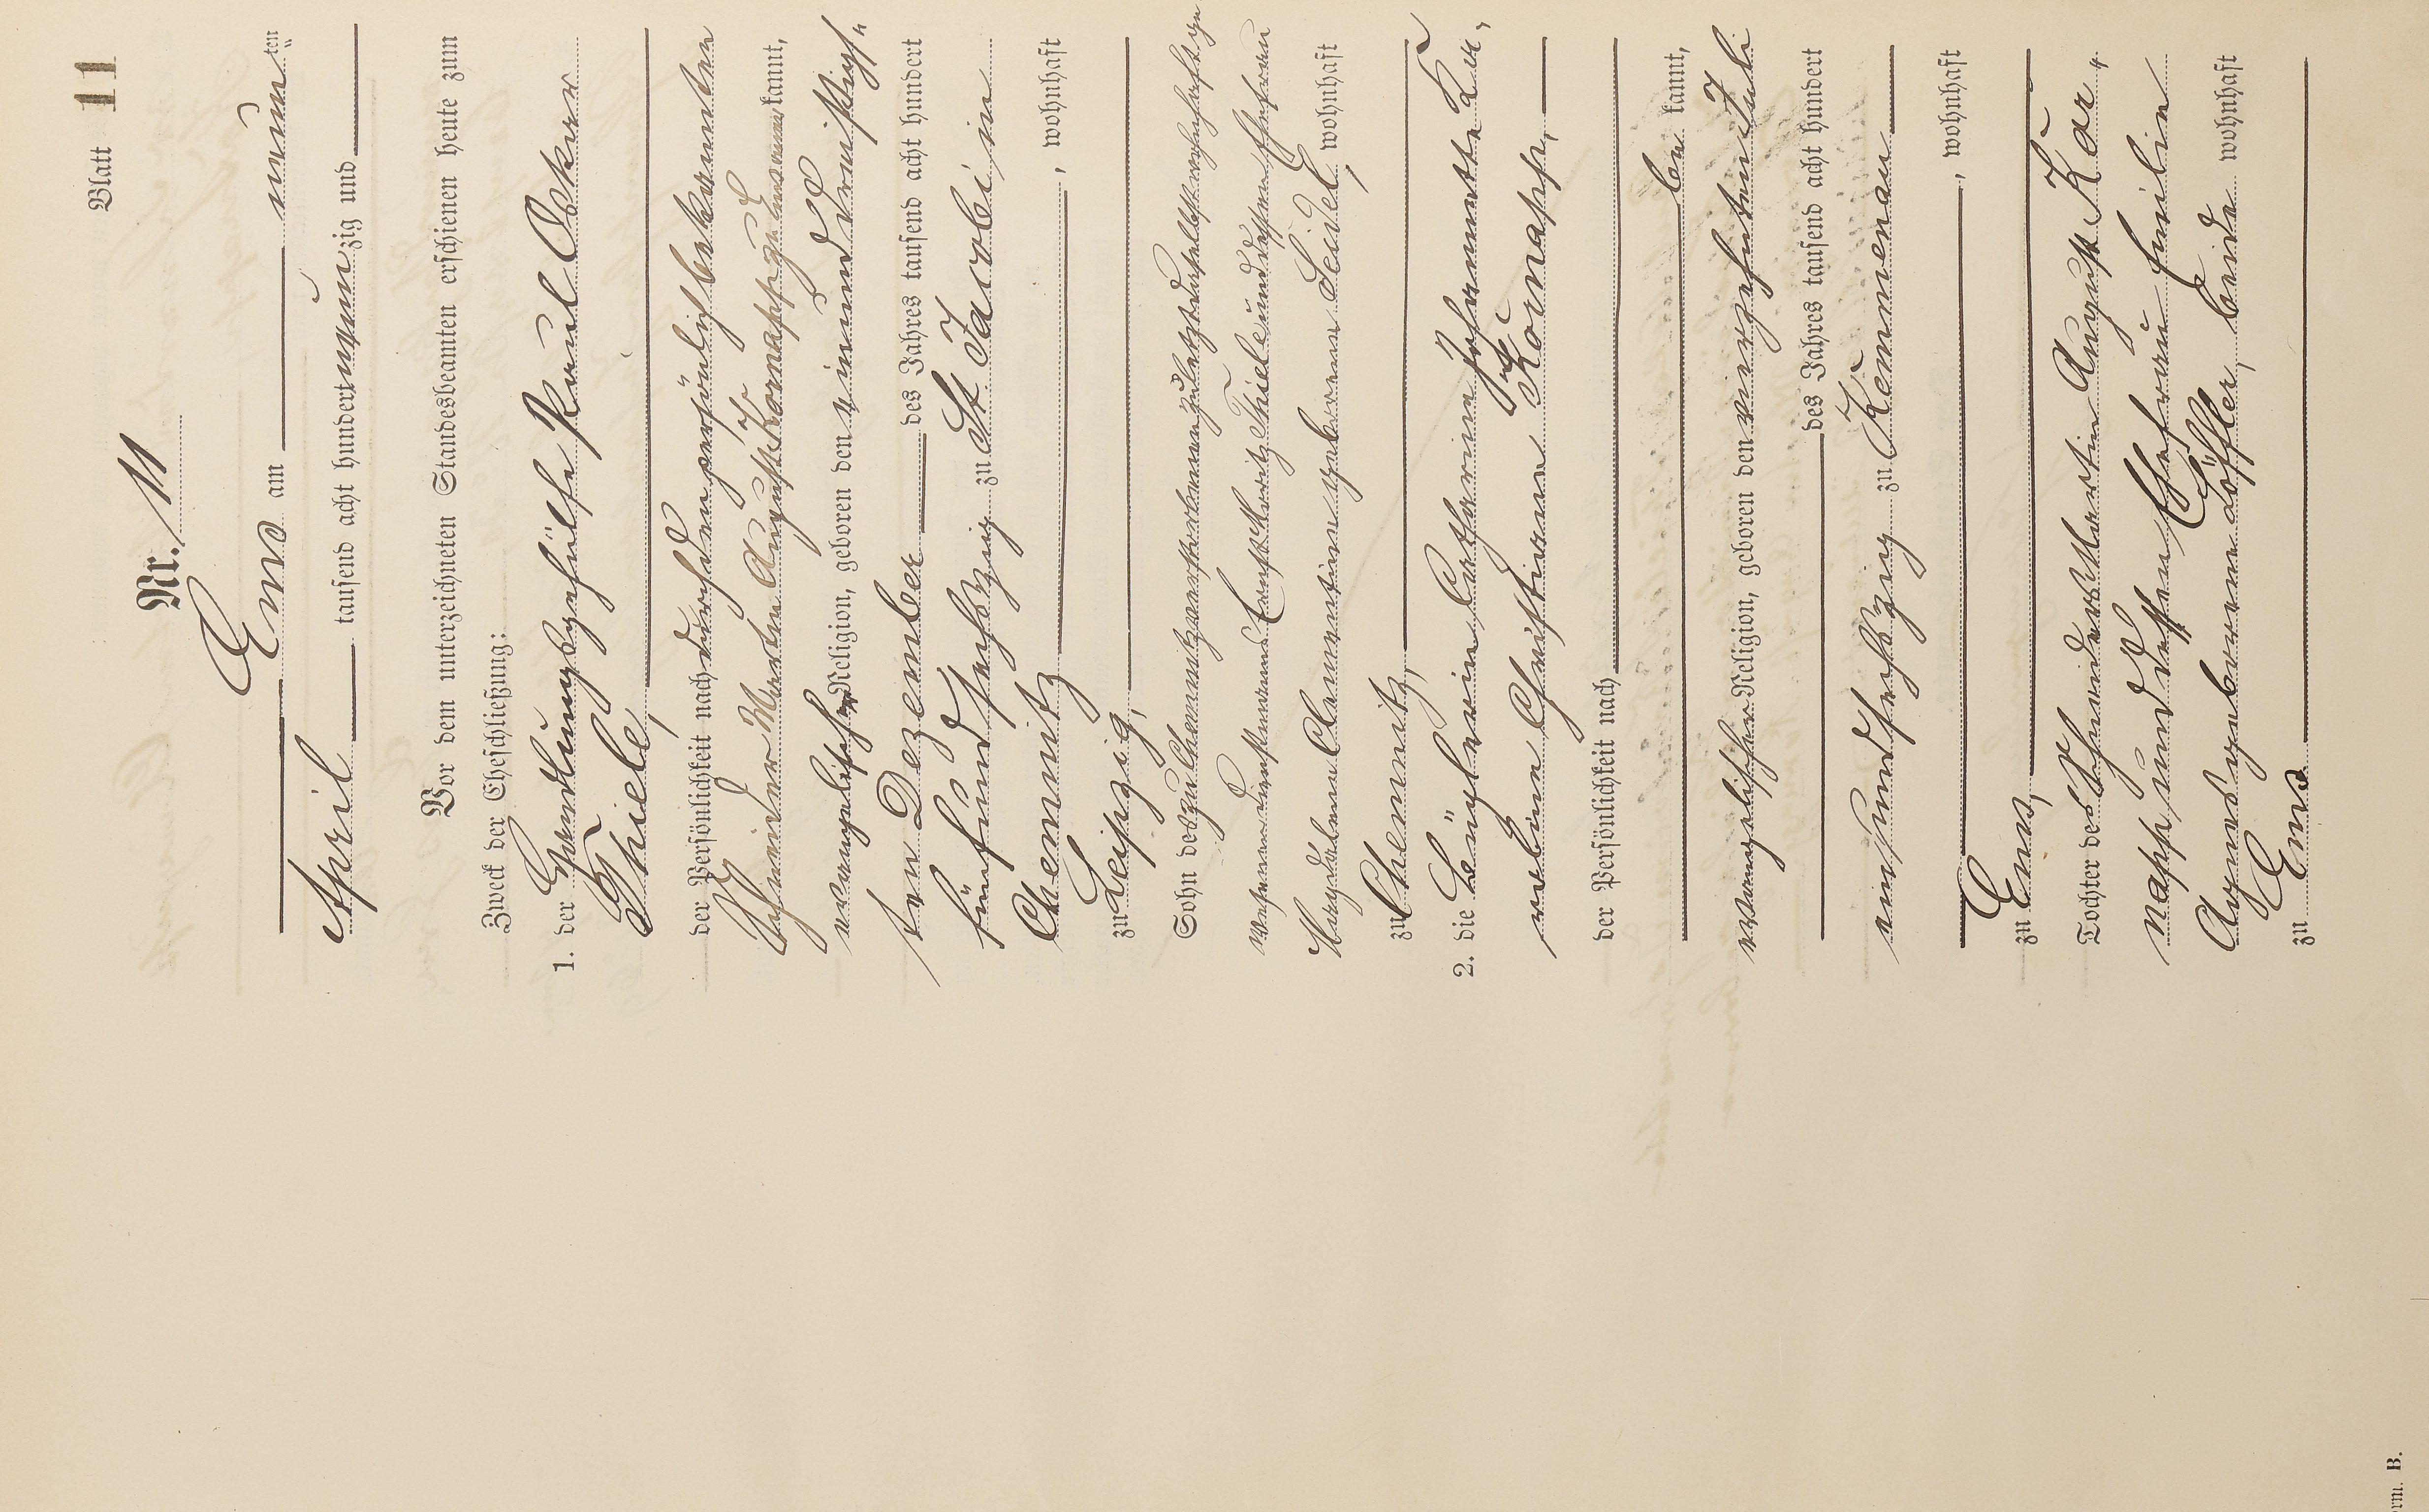 Blatt 11
Nr. 11
Ems am neun ten
April tausend acht hundert neunzig und
Vor dem unterzeichneten Standesbeamten erschienen heute zum
Zweck der Eheschließung:
1. der Handlungsgehülfe Paul Oskar
Thiele,
der Persönlichkeit nach durch den persönlich bekannten
Schneider Martin August Kornapp zu Ems anerkannt,
evangelischer Religion, geboren den einunddreißigs-
ten Dezember des Jahres tausend acht hundert
fünfundsechszig zu St. Jacobi in
Chemnitz, wohnhaft
zu Leipzig,
Sohn des zu Chemnitz verstorbenen zuletzt daselbst wohnhaft ge
wesenen Dienstmanns Ernst Moritz Thiele und dessen Ehefrau
Magdalena Clementine geborene Seidel, wohnhaft
zu Chemnitz,
2. die Büglerin Catharine Johannette Ka-
roline Christiane Kornapp,
der Persönlichkeit nach
be kannt,
evangelischer Religion, geboren den vierzehnten Juli
des Jahres tausend acht hundert
einundsechszig zu Kemmenau
, wohnhaft
zu Ems,
Tochter des Schneiders Martin August Kor-
napp und dessen Ehefrau Emilie
Agnes geborene Löffler, beide wohnhaft
zu Ems
rm. B.